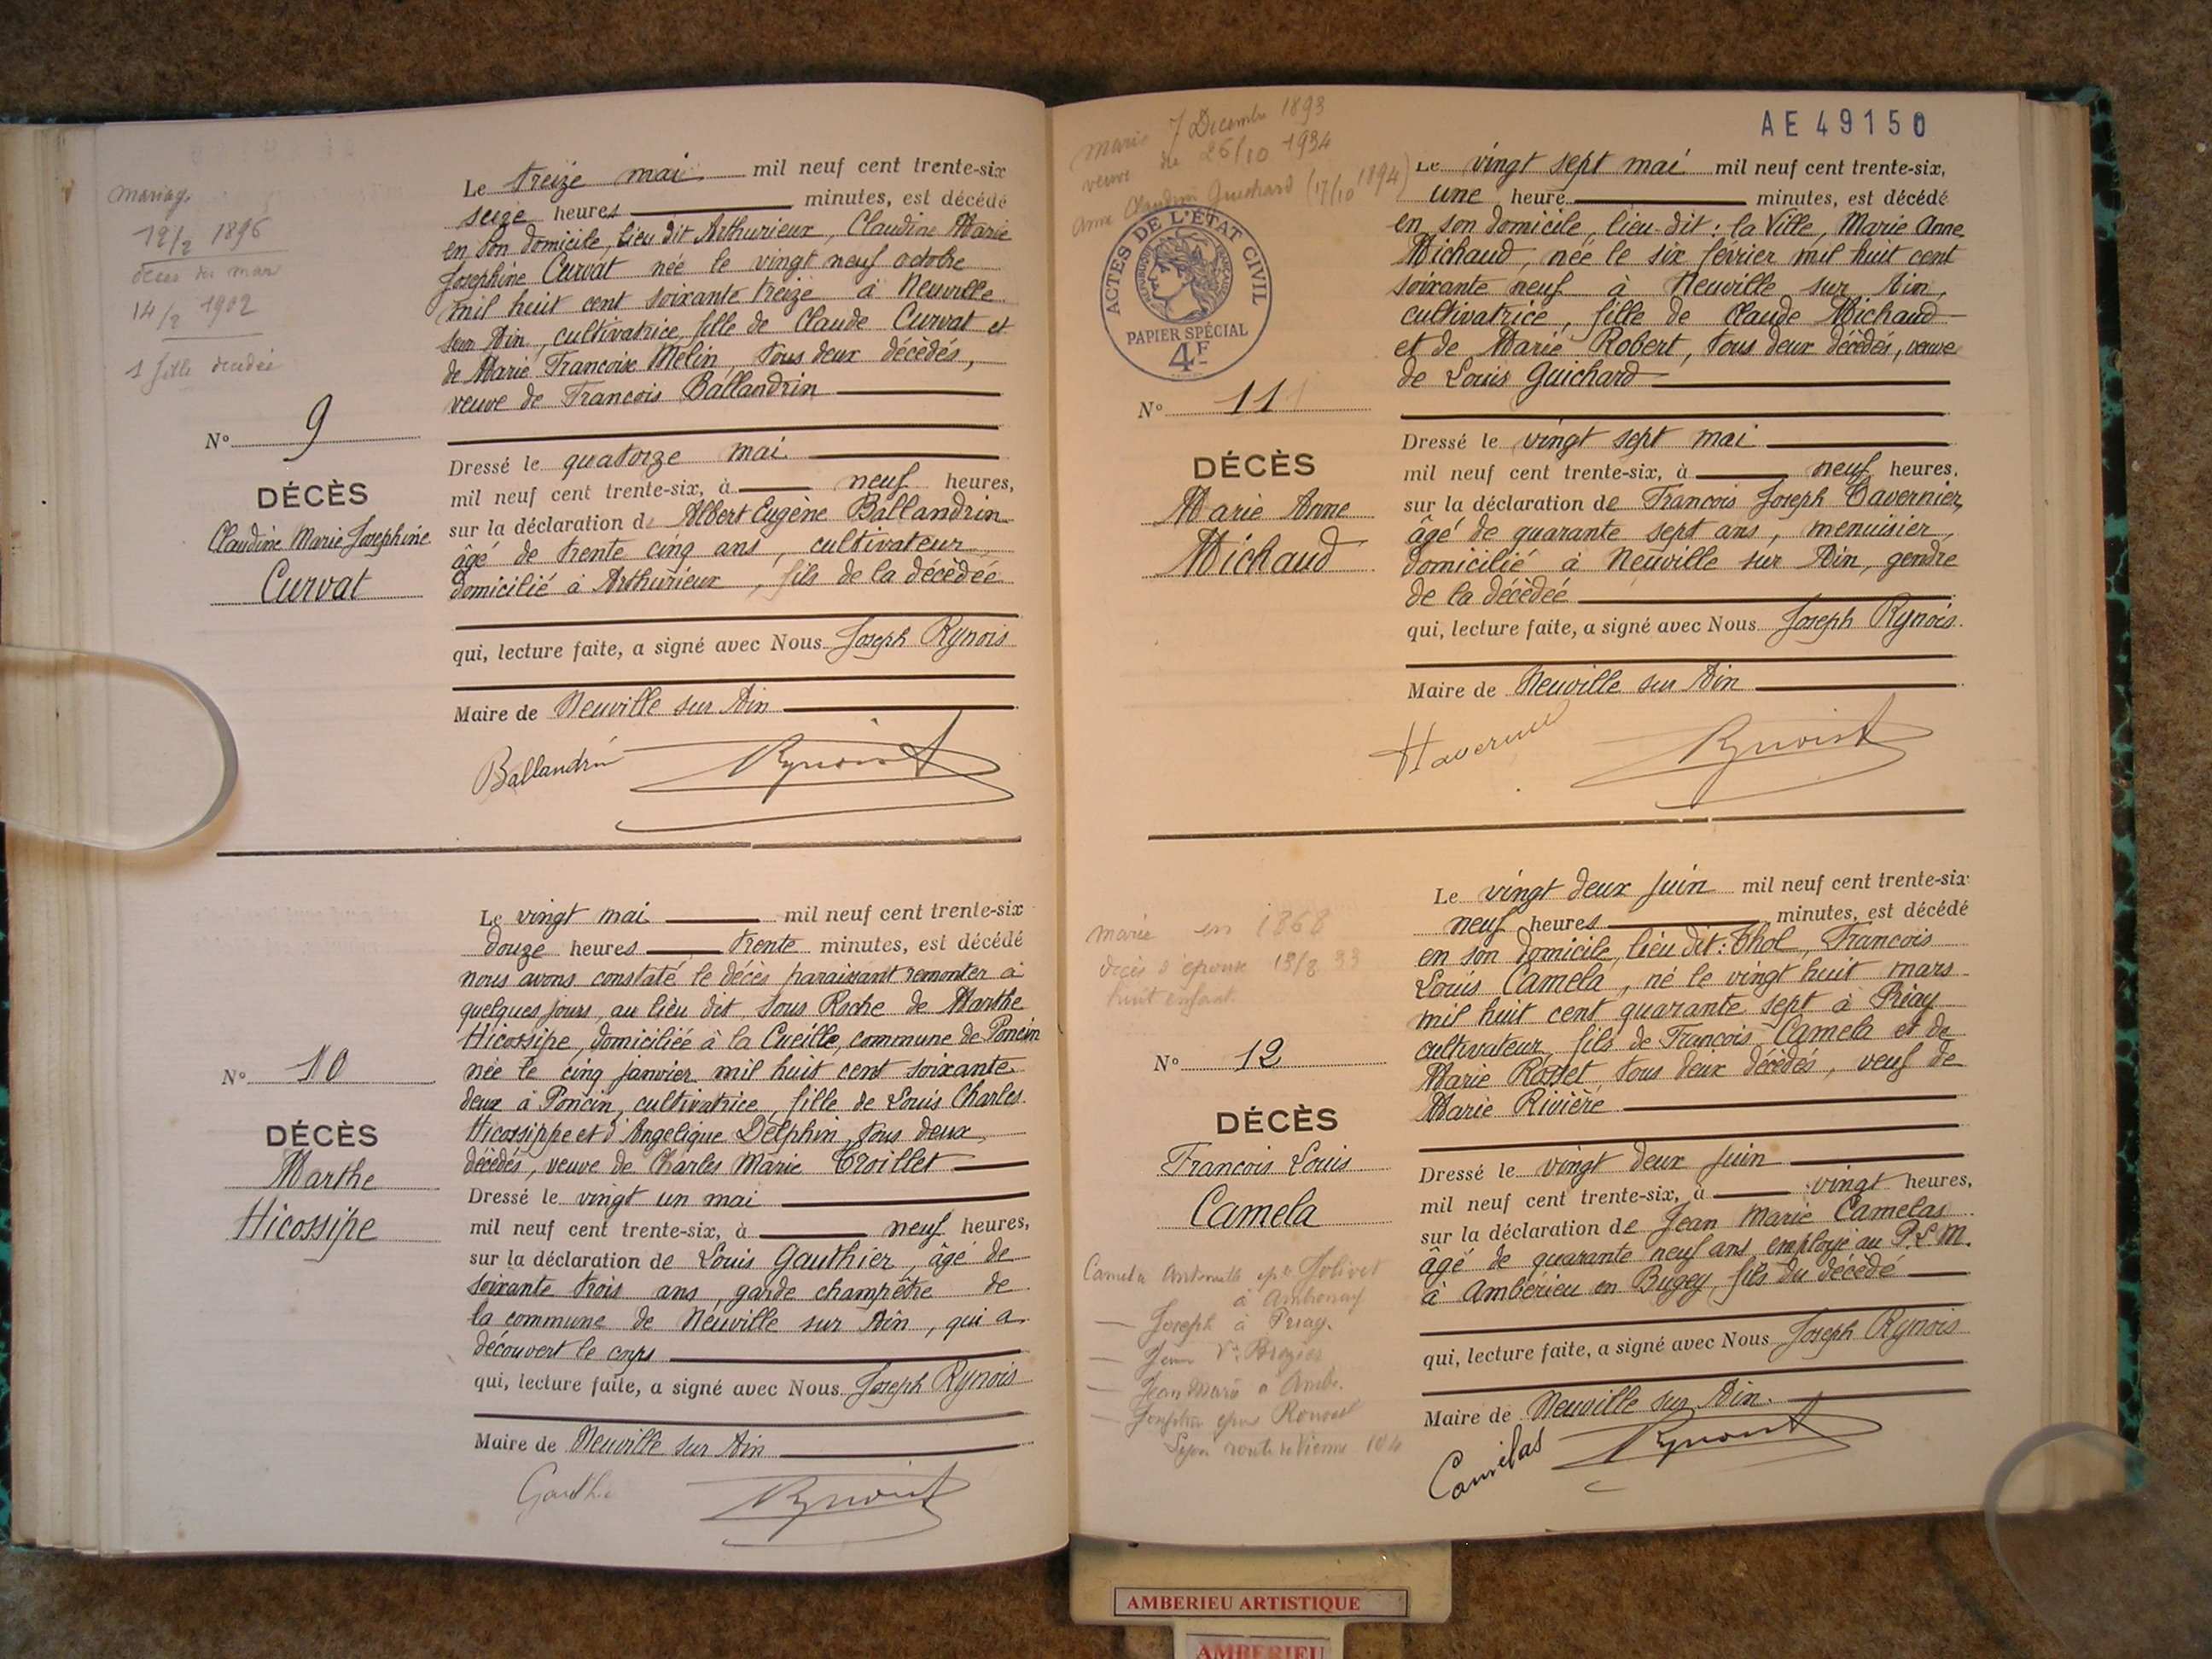 mariage
12/2 1896
deces du mari
14/2 1902
1 fille decedée
Le treize mai mil neuf cent trente-six
seize heures minutes, est décédé
en son domicile, lieu dit Arthurieux, Claudine Marie
Joséphine Curvat née le vingt neuf octobre
mil huit cent soixante treize à Neuville
sur Ain, cultivatrice, fille de Claude Curvat et
de Marie Francoise Melin, tous deux décédés,
veuve de Francois Ballandrin
N° 9
DÉCÈS
Claudine Marie Josephine
Curvat
Dressé le quatorze mai
mil neuf cent trente-six, à neuf heures,
sur la déclaration de Albert Eugène Ballandrin
âgé de trente cinq ans, cultivateur,
domicilié à Arthurieux, fils de la décédée
qui, lecture faite, a signé avec Nous Joseph Rynois
Maire de Neuville sur Ain
Ballandrin Rynois
Le vingt mai mil neuf cent trente-six
douze heures trente minutes, est décédé
nous avons constaté le décès paraissant remonter à
quelques jours, au lieu dit sous Roche de Marthe
Hicossipe, domiciliée à la Cueille, commune de Poncin
née le cinq janvier mil huit cent soixante
deux à Poncin, cultivatrice, fille de Louis Charles
Hicossippe et d'Angelique Delphin, tous deux
décédés, veuve de Charles Marie Croillet
N° 10
DÉCÈS
Marthe
Hicossipe
Dressé le vingt un mai
mil neuf cent trente-six, à neuf heures,
sur la déclaration de Louis Gauthier, âgé de
soixante trois ans, garde champêtre de
la commune de Neuville sur Ain, qui a
découvert le corps
qui, lecture faite, a signé avec Nous Joseph Rynois
Maire de Neuville sur Ain
Rynois
AE 49150
marié 7 Decembre 1893
veuve du 26/10 1934
Anne Claudine Guichard (17/10 1894)
ACTES DE L'ÉTAT CIVIL
PAPIER SPÉCIAL
4F
Le vingt sept mai mil neuf cent trente-six,
une heure minutes, est décédé
en son domicile, lieu-dit : la Ville, Marie Anne
Michaud, née le six février mil huit cent
soixante neuf à Neuville sur Ain,
cultivatrice, fille de Claude Michaud
et de Marie Robert, tous deux décédés, veuve
de Louis Guichard
N° 11
DÉCÈS
Marie Anne
Michaud
Dressé le vingt sept mai
mil neuf cent trente-six, à neuf heures,
sur la déclaration de Francois Joseph Tavernier,
âgé de quarante sept ans, menuisier,
domicilié à Neuville sur Ain, gendre
de la décédée
qui, lecture faite, a signé avec Nous Joseph Rynois
Maire de Neuville sur Ain
Rynois
marié en 1868
décès d'épouse 13/8 33
huit enfant
Le vingt deux juin mil neuf cent trente-six
neuf heures minutes, est décédé
en son domicile, lieu dit : Thol, Francois
Louis Camela, né le vingt huit mars
mil huit cent quarante sept à Priay
cultivateur, fils de Francois Camela et de
Marie Rosset, tous deux décédés, veuf de
Marie Rivière
N° 12
DÉCÈS
Francois Louis
Camela
Dressé le vingt deux juin
mil neuf cent trente-six, à vingt heures,
sur la déclaration de Jean Marie Camelas
âgé de quarante neuf ans, employé au P.L.M.
à Ambérieu en Bugey, fils du décédé
qui, lecture faite, a signé avec Nous Joseph Rynois
Maire de Neuville sur Ain.
Camelas Rynois
Camela Jolivet
à Ambronay
Joseph à Priay.
Jean Marie à Amb.
AMBERIEU ARTISTIQUE
AMBERIEU